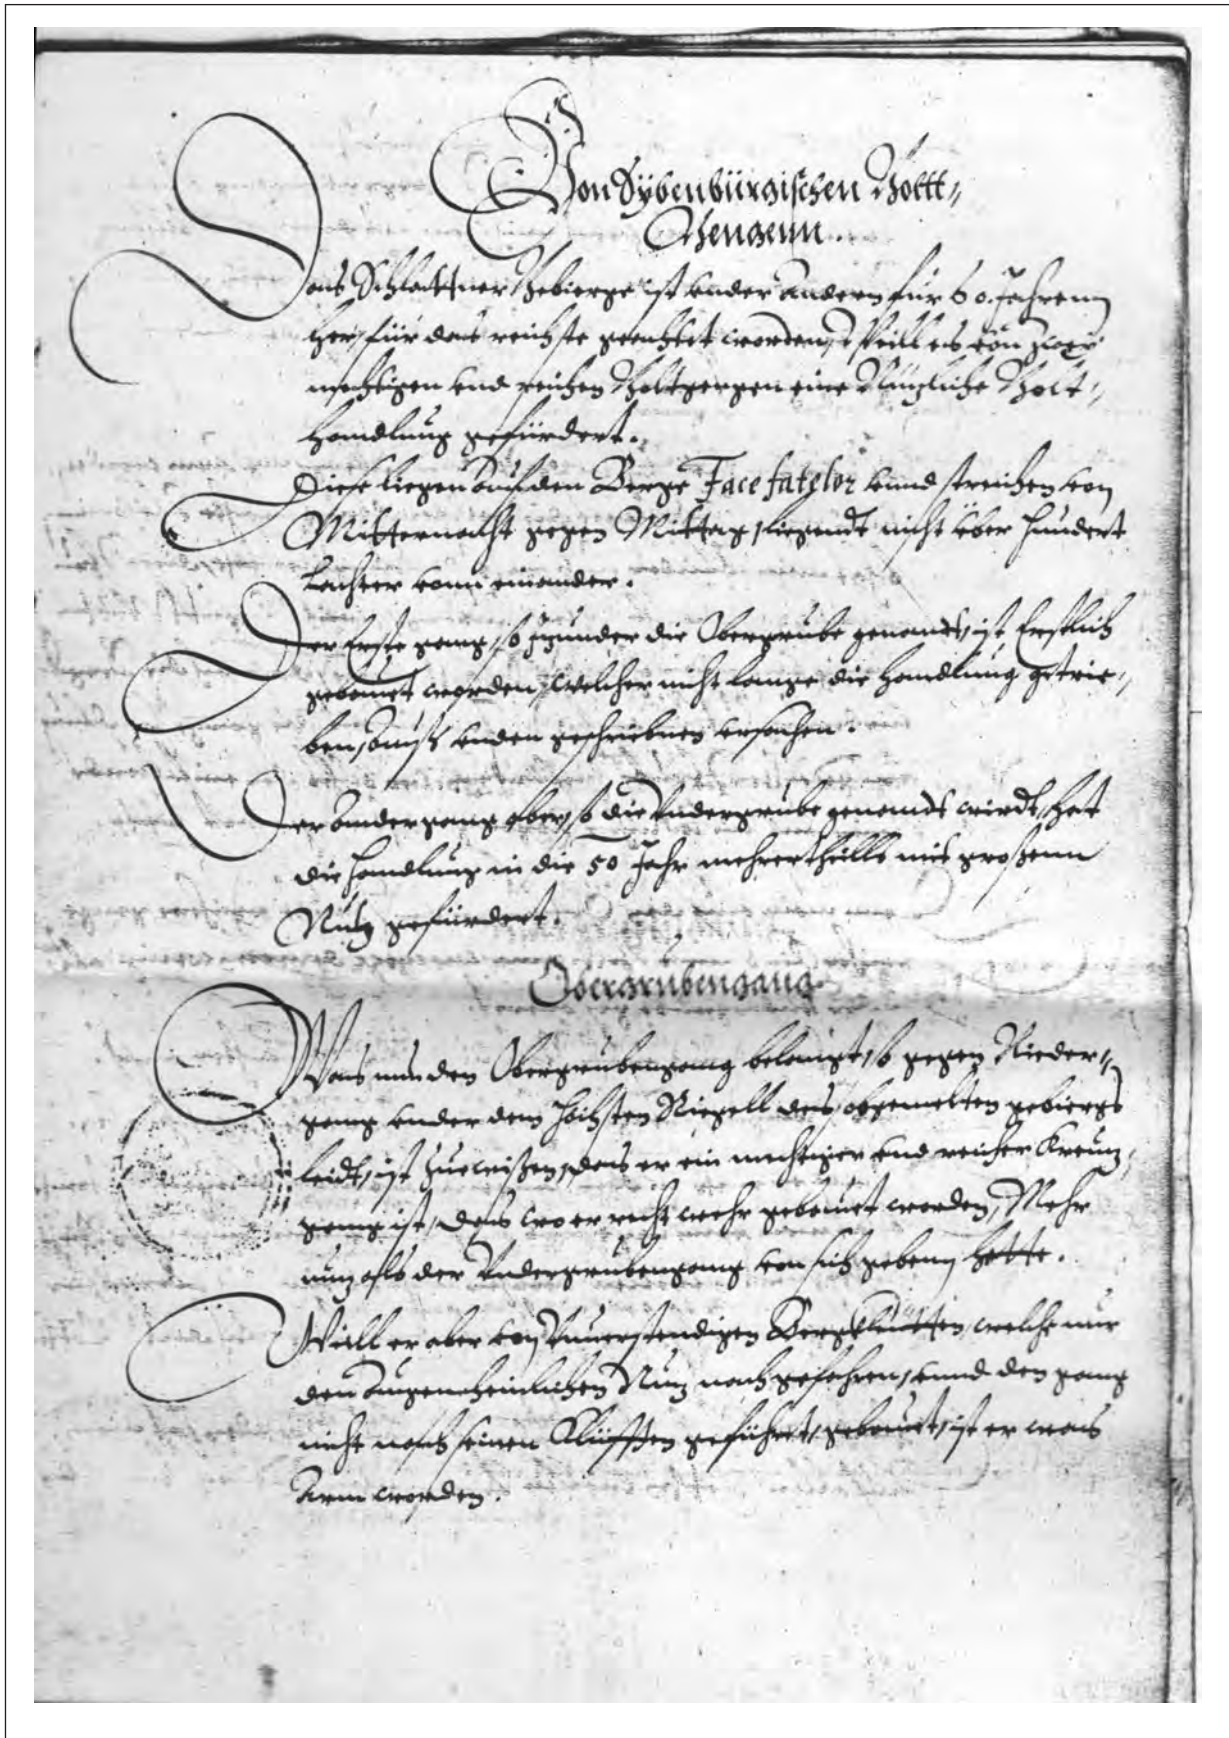 Von Sÿbenbürgischen Goltt„
Gengenn.
Das Schlattner Gebierge ist vnder andern für 60. Jahrenn
her, für das reichste geachtet worden, Weill es von zwey
mechtigen vnd reichen Goltgengen eine Nützliche Golt„
Handlung gefürdert.
Diese liegen auf den Berge Facefatzloz vnnd streichen von
Mitternacht gegen Mittag, liegendt nicht über hundert
Lachter vonn einander.
Der Erste gang, so itzunder die Obergrube genandt, ist Erstlich
gebauet worden, welcher nicht lange die Handlung getrie„
ben, auß vnden geschriebnen vrsachen.
Der ander gang aber, so die Vndergrube genandt wirdt, hat
die Handlung in die 50 Jahr mehrertheills mit großenn
Nutz gefürdert.
Obergrubengang.
Was nun den Obergrubengang belangt, so gegen Nieder„
gang vnder dem höchsten Riegell des, obgemelten gebiergs
leidt, ist Zue wißen, das er ein mechtiger vnd reicher Kreutz„
gang ist, das wo er recht wehr gebauet worden, Mehr
nutz als der Vndergrubengang von sich geben hette.
Weill er aber von Vnuerstendigen Bergkleutten, welche nur
den augenscheinlichen Nutz nachgefahren, vnnd den gang
nicht nach seinen Klüfften geführt, gebauet, ist er was
Arm worden.